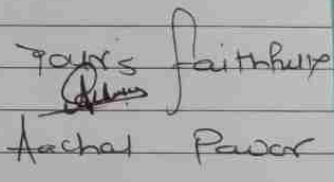 your's faithfully
Aachal Pawar